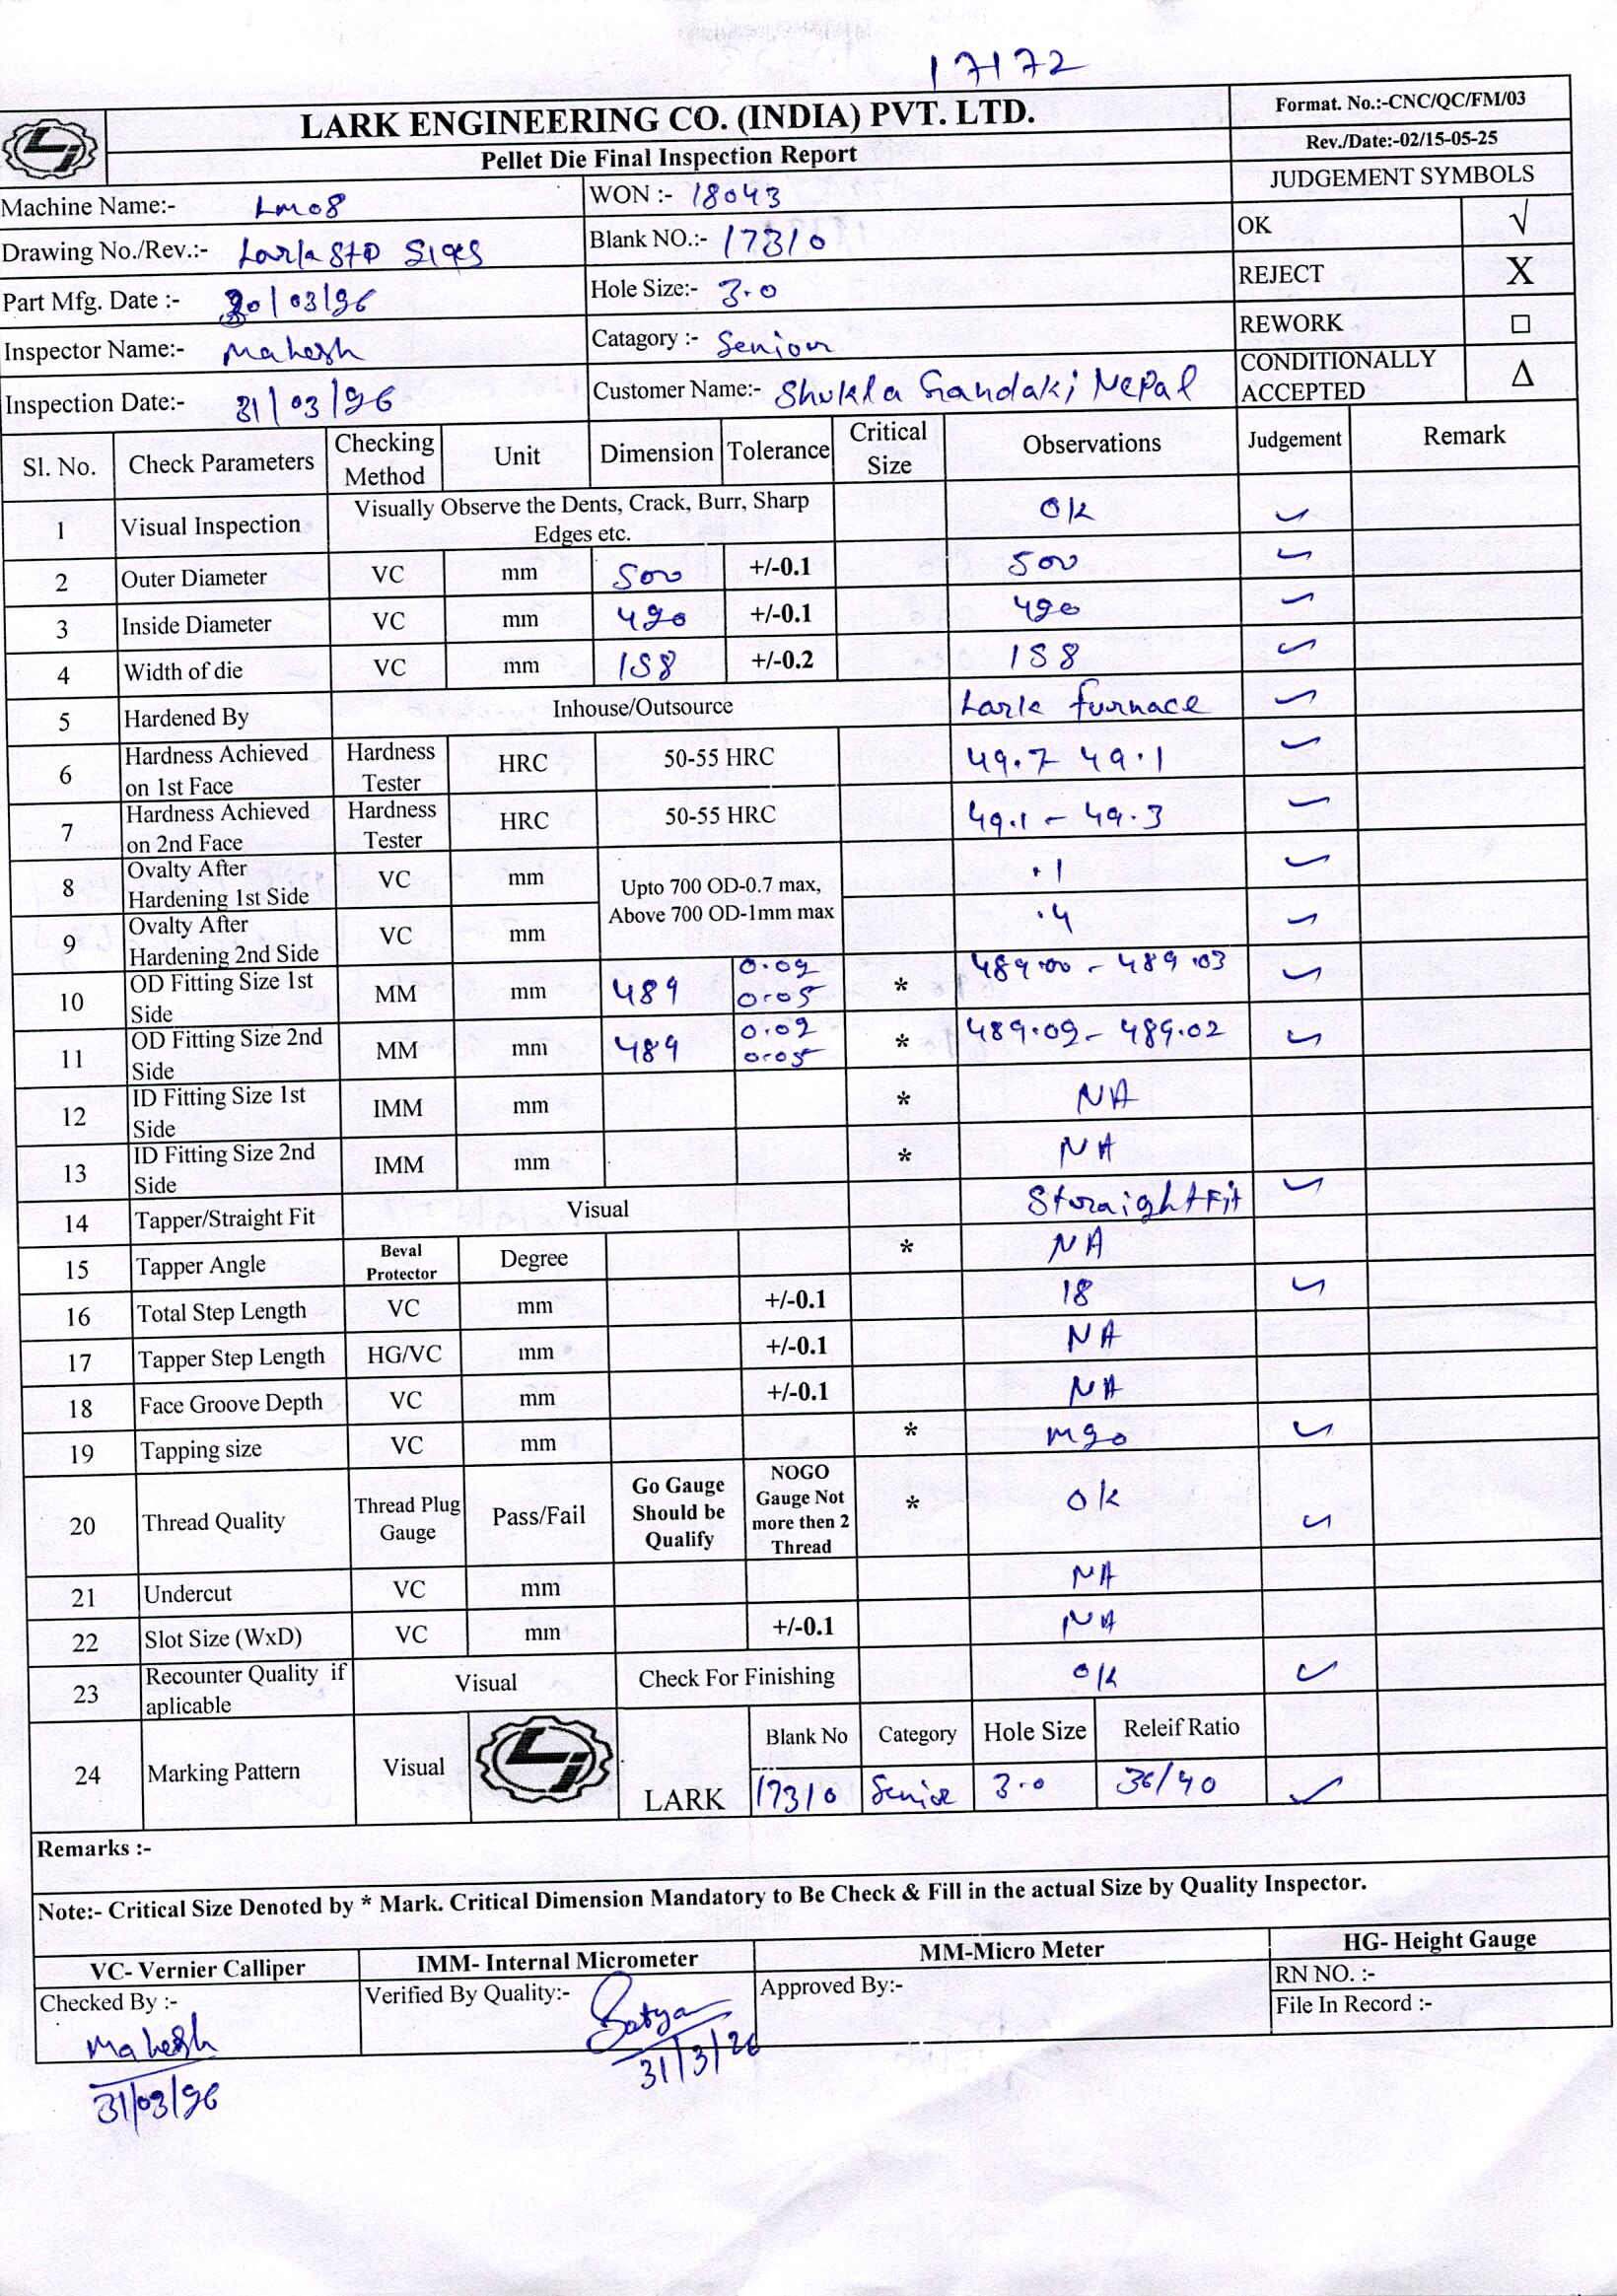 17172
LARK ENGINEERING CO. (INDIA) PVT. LTD.
Pellet Die Final Inspection Report
Format. No.:-CNC/QC/FM/03
Rev./Date:-02/15-05-25
JUDGEMENT SYMBOLS
OK √
REJECT X
REWORK □
CONDITIONALLY ACCEPTED Δ
Machine Name:- Lm08
WON :- 18043
Drawing No./Rev.:- Lark STD
Blank NO.:- 17310
Part Mfg. Date :- 30/03/26
Hole Size:- 3.0
Inspector Name:- Mahesh
Catagory :- Senior
Inspection Date:- 31/03/26
Customer Name:- Shukla Gandaki Nepal
Sl. No. Check Parameters Checking Method Unit Dimension Tolerance Critical Size Observations Judgement Remark
1 Visual Inspection Visually Observe the Dents, Crack, Burr, Sharp Edges etc. Ok ✓
2 Outer Diameter VC mm 500 +/-0.1 500 ✓
3 Inside Diameter VC mm 420 +/-0.1 420 ✓
4 Width of die VC mm 158 +/-0.2 158 ✓
5 Hardened By Inhouse/Outsource Lark furnace ✓
6 Hardness Achieved on 1st Face Hardness Tester HRC 50-55 HRC 49.7 49.1 ✓
7 Hardness Achieved on 2nd Face Hardness Tester HRC 50-55 HRC 49.1 - 49.3 ✓
8 Ovalty After Hardening 1st Side VC mm Upto 700 OD-0.7 max, Above 700 OD-1mm max .1 ✓
9 Ovalty After Hardening 2nd Side VC mm .4 ✓
10 OD Fitting Size 1st Side MM mm 489 0.02 0.05 * 489.00 - 489.03 ✓
11 OD Fitting Size 2nd Side MM mm 489 0.02 0.05 * 489.02 - 489.02 ✓
12 ID Fitting Size 1st Side IMM mm * NA
13 ID Fitting Size 2nd Side IMM mm * NA
14 Tapper/Straight Fit Visual Straight Fit ✓
15 Tapper Angle Beval Protector Degree * NA
16 Total Step Length VC mm +/-0.1 18 ✓
17 Tapper Step Length HG/VC mm +/-0.1 NA
18 Face Groove Depth VC mm +/-0.1 NA
19 Tapping size VC mm * M20 ✓
20 Thread Quality Thread Plug Gauge Pass/Fail Go Gauge Should be Qualify NOGO Gauge Not more then 2 Thread * ok ✓
21 Undercut VC mm NA
22 Slot Size (WxD) VC mm +/-0.1 NA
23 Recounter Quality if aplicable Visual Check For Finishing ok ✓
24 Marking Pattern Visual LARK Blank No Category Hole Size Releif Ratio
17310 Senior 3.0 36/40 ✓
Remarks :-
Note:- Critical Size Denoted by * Mark. Critical Dimension Mandatory to Be Check & Fill in the actual Size by Quality Inspector.
VC- Vernier Calliper IMM- Internal Micrometer MM-Micro Meter HG- Height Gauge
Checked By :- Verified By Quality:- Approved By:- RN NO. :-
File In Record :-
Mahesh Satya
31/03/26 31/3/26